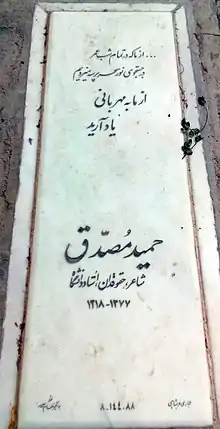 ... از ما که در تمام شب عمر
در جستجوی نور سحر پرسه می‌زدیم
از ما به مهربانی
یاد آرید
حمید مصدق
شاعر، حقوقدان، استاد دانشگاه
۱۳۱۸-۱۳۷۷
۸،۱۴۴،۸۸